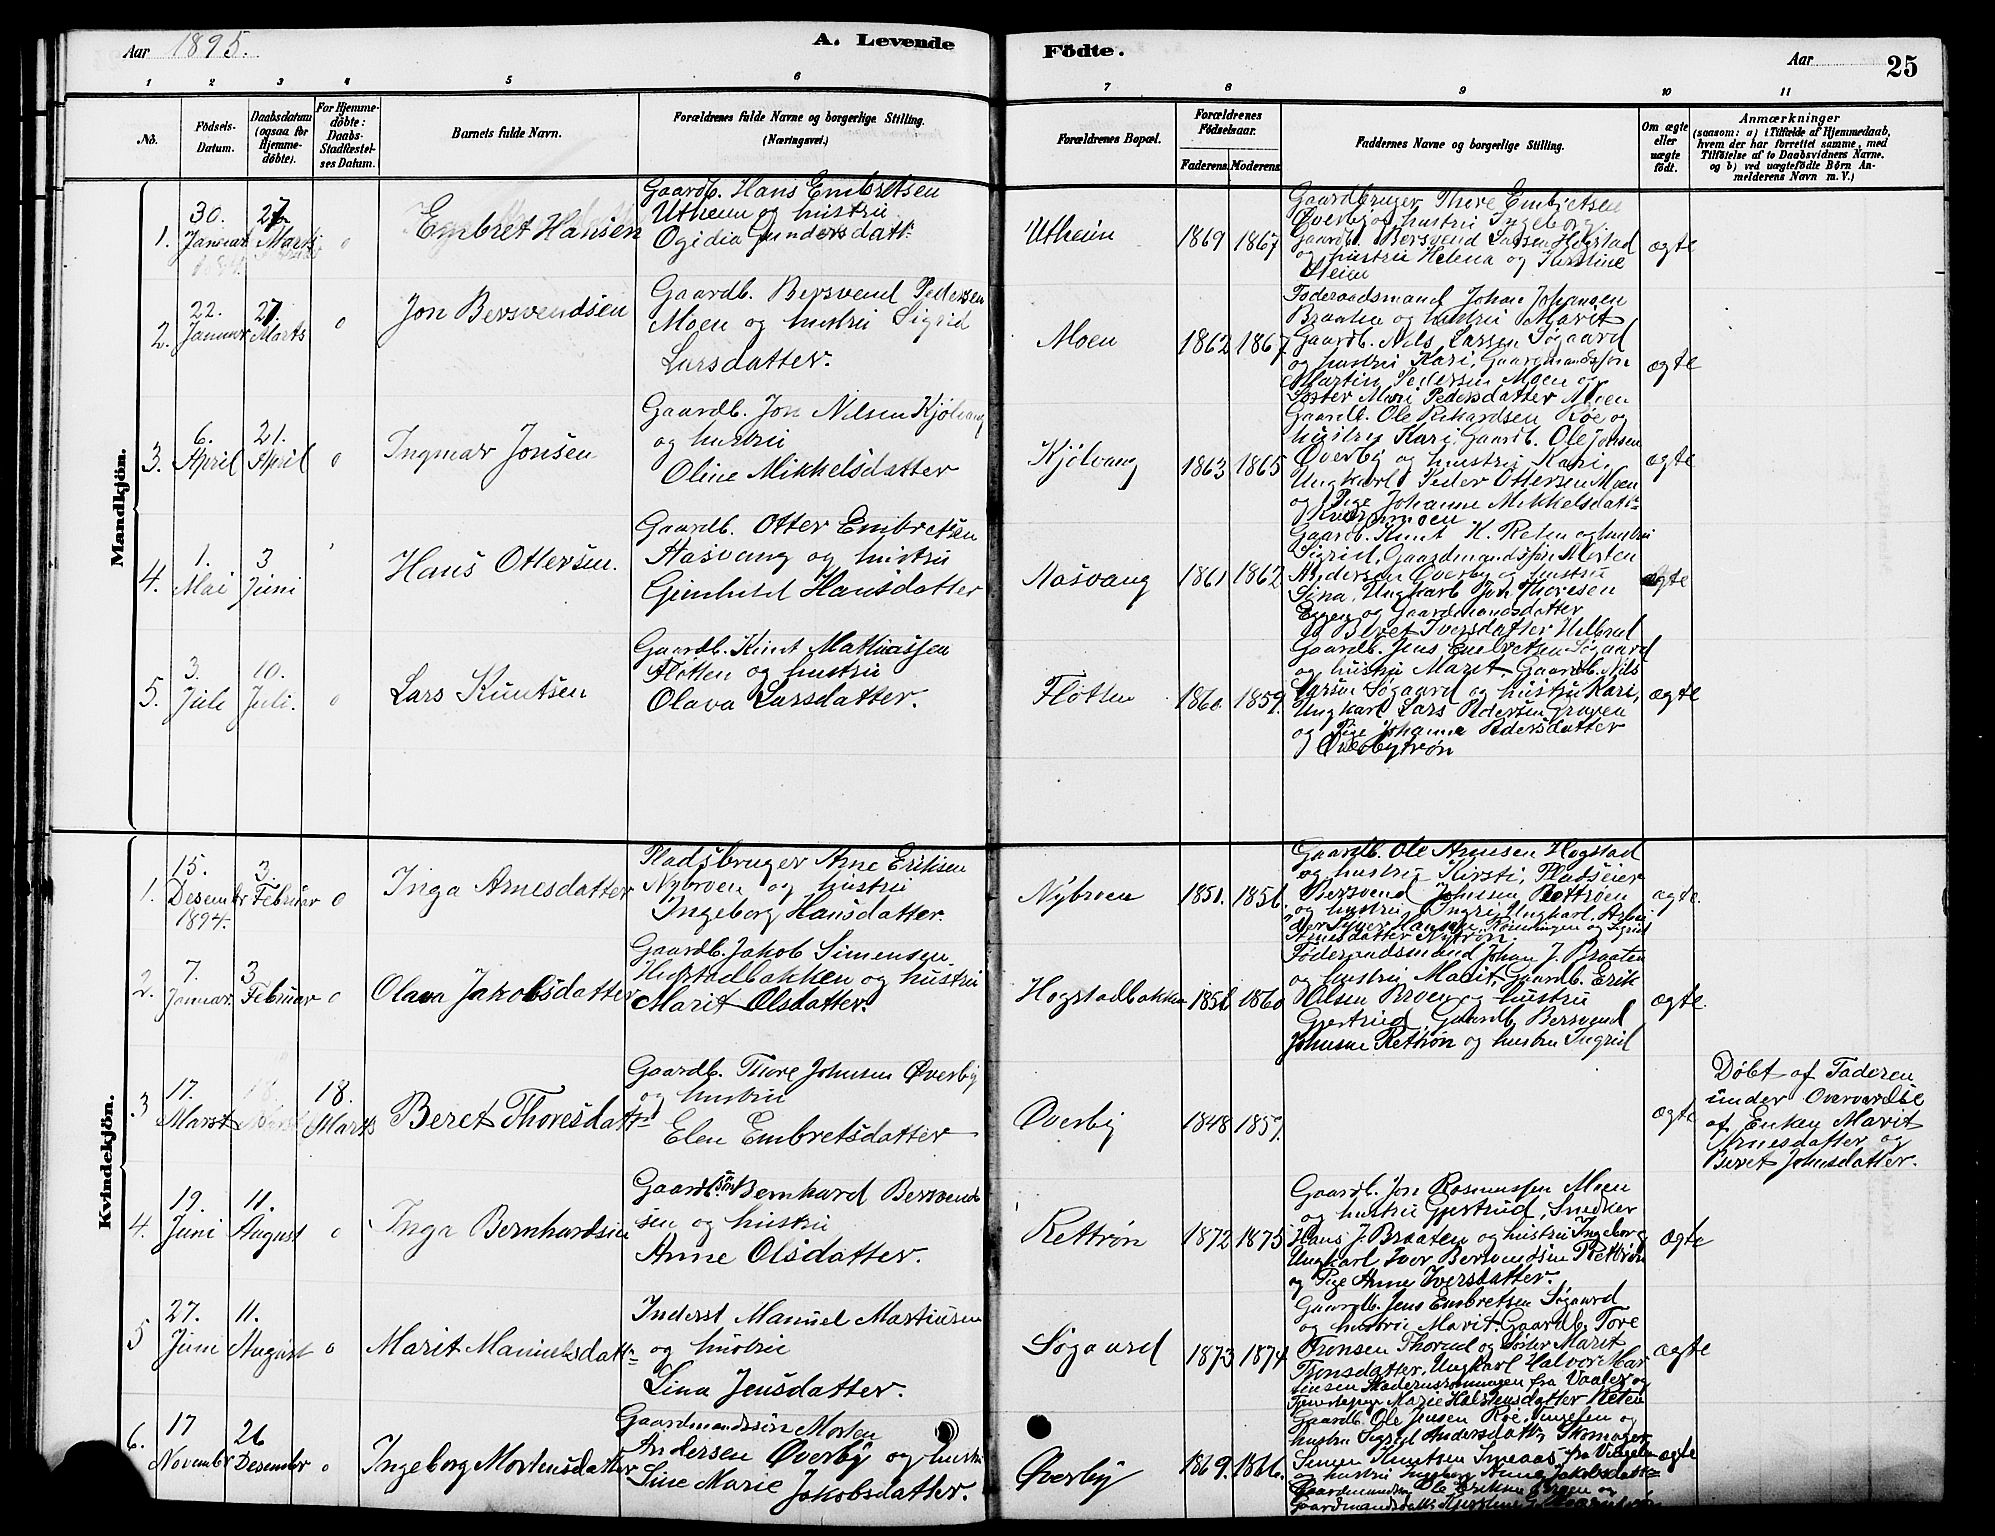 Aar 1895.
A. Levende
Födte.
Aar
25
1 2 3 4 5 6 7 8 9 10 11
No.
Födsels-
Datum.
Daabsdatum
(ogsaa for
Hjemme-
döbte).
For Hjemme-
döbte:
Daabs-
Stadfæstel-
ses Datum.
Barnets fulde Navn.
Forældrenes fulde Navne og borgerlige Stilling.
(Næringsvei.)
Forældrenes Bopæl.
Forældrenes
Födselsaar.
Faderens. Moderens.
Faddernes Navne og borgerlige Stilling.
Om ægte
eller
uægte
födt.
Anmærkninger
(saasom: a) i Tilfælde af Hjemmedaab,
hvem der har forrettet samme, med
Tilföielse af to Daabsvidners Navne.
og b) ved uægtefödte Börn An-
melderens Navn m. V.)
Mandkjön.
1.
30.
Januar
27
Marts
0
Embret Hansen
Gaardb. Hans Embretsen
Utheim og hustru
Ogidia Gundersdatt.
Utheim
1869 1867
Gaardbruger Thore Embretsen
Øverby og hustru Ingeborg.
Gaardb. Bersvend Larsen Hogstad
og hustru Helena og Kirstine
Steien
ægte
2.
22.
Januar
27.
Marts
0
Jon Bersvendsen
Gaardb. Bersvend Pedersen
Moen og hustru Sigrid
Larsdatter.
Moen
1862 1867.
Føderaadsmand Johan Johansen
Braaten og hustru Marit
Gaardb. Nils Larsen Søgaard
og hustru Kari, Gaardmandssøn
Martin Pedersen Moen og
Søster Mari Pedersdatter Moen
ægte
3.
6.
April
21.
April
0
Ingmar Jonsen
Gaardb. Jon Nilsen Kjølvang
og hustru
Oline Mikkelsdatter
Kjølvang
1863 1865
Gaardb. Ole Rikardsen Røe og
hustru Kari, Gaardb. Ole Johnsen
Øverby og hustru Kari,
Ungkarl Peder Ottersen Moen
og Pige Johanne Mikkelsdatt=
Kvernmoen
ægte
4.
1.
Mai
3
Juni
Hans Ottersen.
Gaardb. Otter Embretsen
Aasvang og hustru
Gunhild Hansdatter
Aasvang
1861 1862
Gaardb. Knut K. Reten og hustru
Sigrid, Gaardmandssøn Morten
Andersen Øverby og hustru
Sina, Ungkarl Jon Thoresen
Eggen og Gaardmandsdatter
Beret Iversdatter
ægte
5.
3.
Juli
10.
Juli.
0
Lars Knutsen
Gaardb. Knut Mathiassen
Fløtten og hustru
Olava Larsdatter.
Fløtten
1860. 1859.
Gaardb. Jens Embretsen Søgaard
og hustru Marit, Gaardb. Nils
Larsen Søgaard og hustru Kari,
Ungkarl Lars Pedersen Gruven
og Pige Johanna Pedersdatter
Øverbytrøn
ægte
Kvindekjön.
1.
15.
Desembr
1894.
3.
Februar
0
Inga Arnesdatter
Pladsbruger Arne Eriksen
Nybroen og hustru
Ingeborg Hansdatter.
Nybroen
1851. 1856.
Gaardb. Ole Arnesen Hogstad
og hustru Kirsti, Pladseier
Bersvend Johnsen Rettrøen
og hustru Ingri, Ungkarl, Arbei
Arnesdatter Nytrøn.
ægte.
2.
7.
Januar.
3
Februar
0
Olava Jakobsdatter
Gaardb. Jakob Simensen
Hogstadbakken og hustru
Marit Olsdatter.
Hogstadbakken
1856 1860
Føderaadsmand Johan J. Braaten
og hustru Marit, Gaardb. Erik
Olsen Broen og hustru
Gjertrud, Gaardb. Bersvend
Johnsen Rettrøn og hustru Ingrid
ægte.
3
17.
Marst
18.
18.
Marts
Beret Thoresdatt=
Gaardb. Thore Johnsen Øverby
og hustru
Elen Embretsdatter
Øverby
1848 1859.
ægte
Døbt af Faderen
under Overværelse
af Enken Marit
Arnesdatter og
Beret Johnsdatter.
4.
19.
Juni
11.
August
0
Inga Bernhardsen
Gaardb.søn Bernhard Bersvend
sen og hustru
Anne Olsdatter.
Rettrøn
1872 1875
Gaardb. Jon Rasmussen Moen
og hustru Gjertrud, Smeder
Hans J. Braaten og hustru Ingeborg
Ungkarl Iver Bersvendsen Rettrøn
og Pige Anne Iversdatter.
ægte
5
27.
Juni
11.
August
0
Marit Manuelsdatt=
Inderst Manuel Martiusen
og hustru
Sina Jensdatter.
Søgaard
1873 1874
Gaardb. Jens Embretsen Søgaard
og hustru Marit, Gaardb. Tore
Tronsen Thorud og Søster Marit
Tronsdatter, Ungkarl Halvor Mar
tinsen fra Vaaler og
Marie Halstensdatter Reten
ægte
6.
17
Novembr
26
Desembr
0
Ingeborg Mortensdatter
Gaardmandssøn Morten
Andersen Øverby og hustru
Sine Marie Jakobsdatter.
Øverby
1869. 1866.
Gaardb. Ole Jensen Røe, og
hustru Sigrid Andersdatt, Skomager
Simen Knutsen fra Vingelen
og hustru Ingeborg Anna Jakobsdatt=
ægte